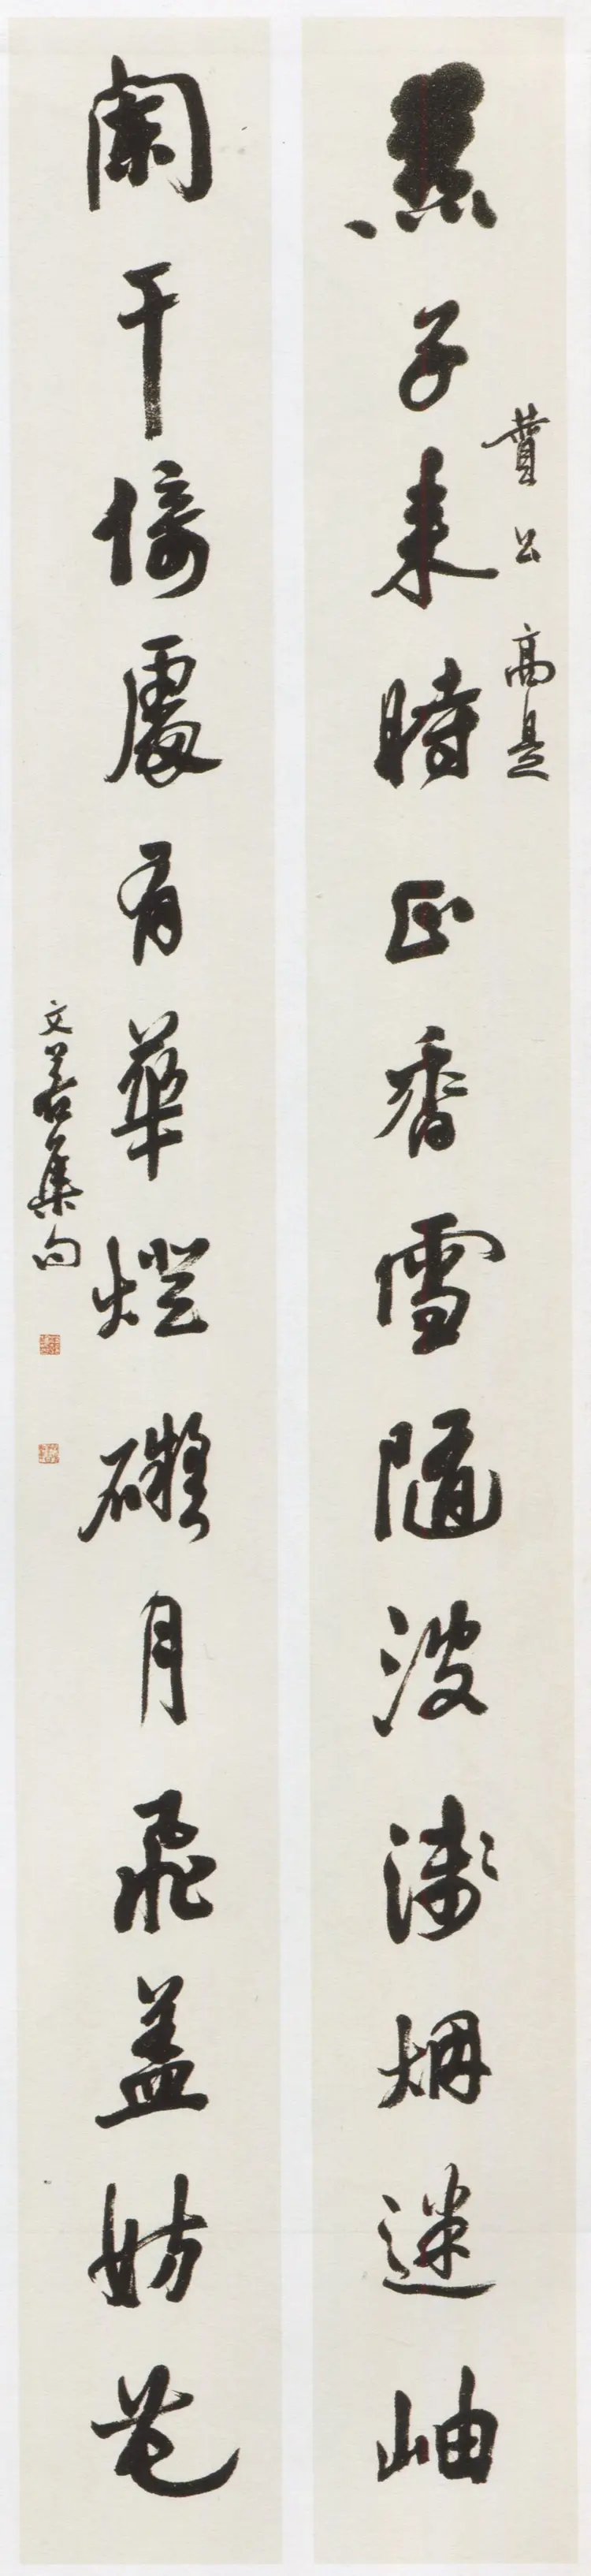 燕子来時正香雪隨波淺烟迷岫
公高是
闌干倚處有華燈礙月飛蓋妨花
文若集句